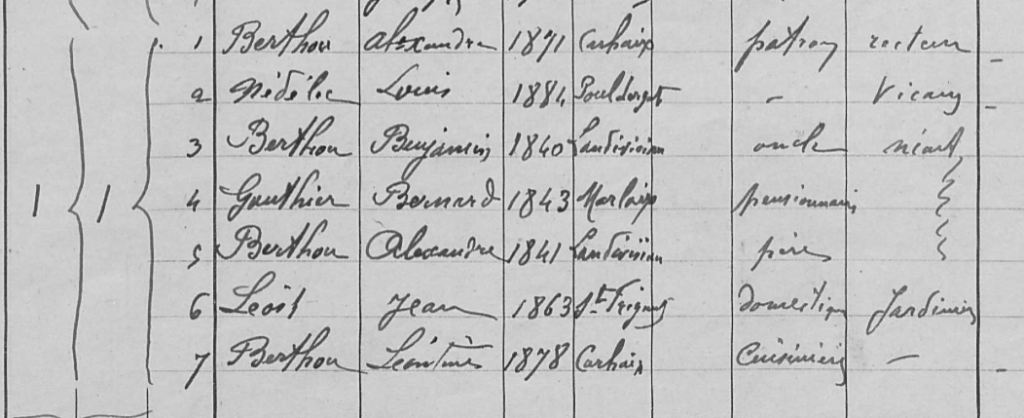 1 1
1 Berthou Alexandre 1871 Carhaix patron recteur -
2 Nédélec Louis 1884 Pouldergat - Vicaire -
3 Berthou Benjamin 1840 Landivisiau oncle néant
4 Gouthier Bernard 1843 Morlaix pensionnaire
5 Berthou Alexandre 1841 Landivisiau père
6 Léost Jean 1863 domestique Jardinier
7 Berthou Léontine 1878 Carhaix Cuisinière - -